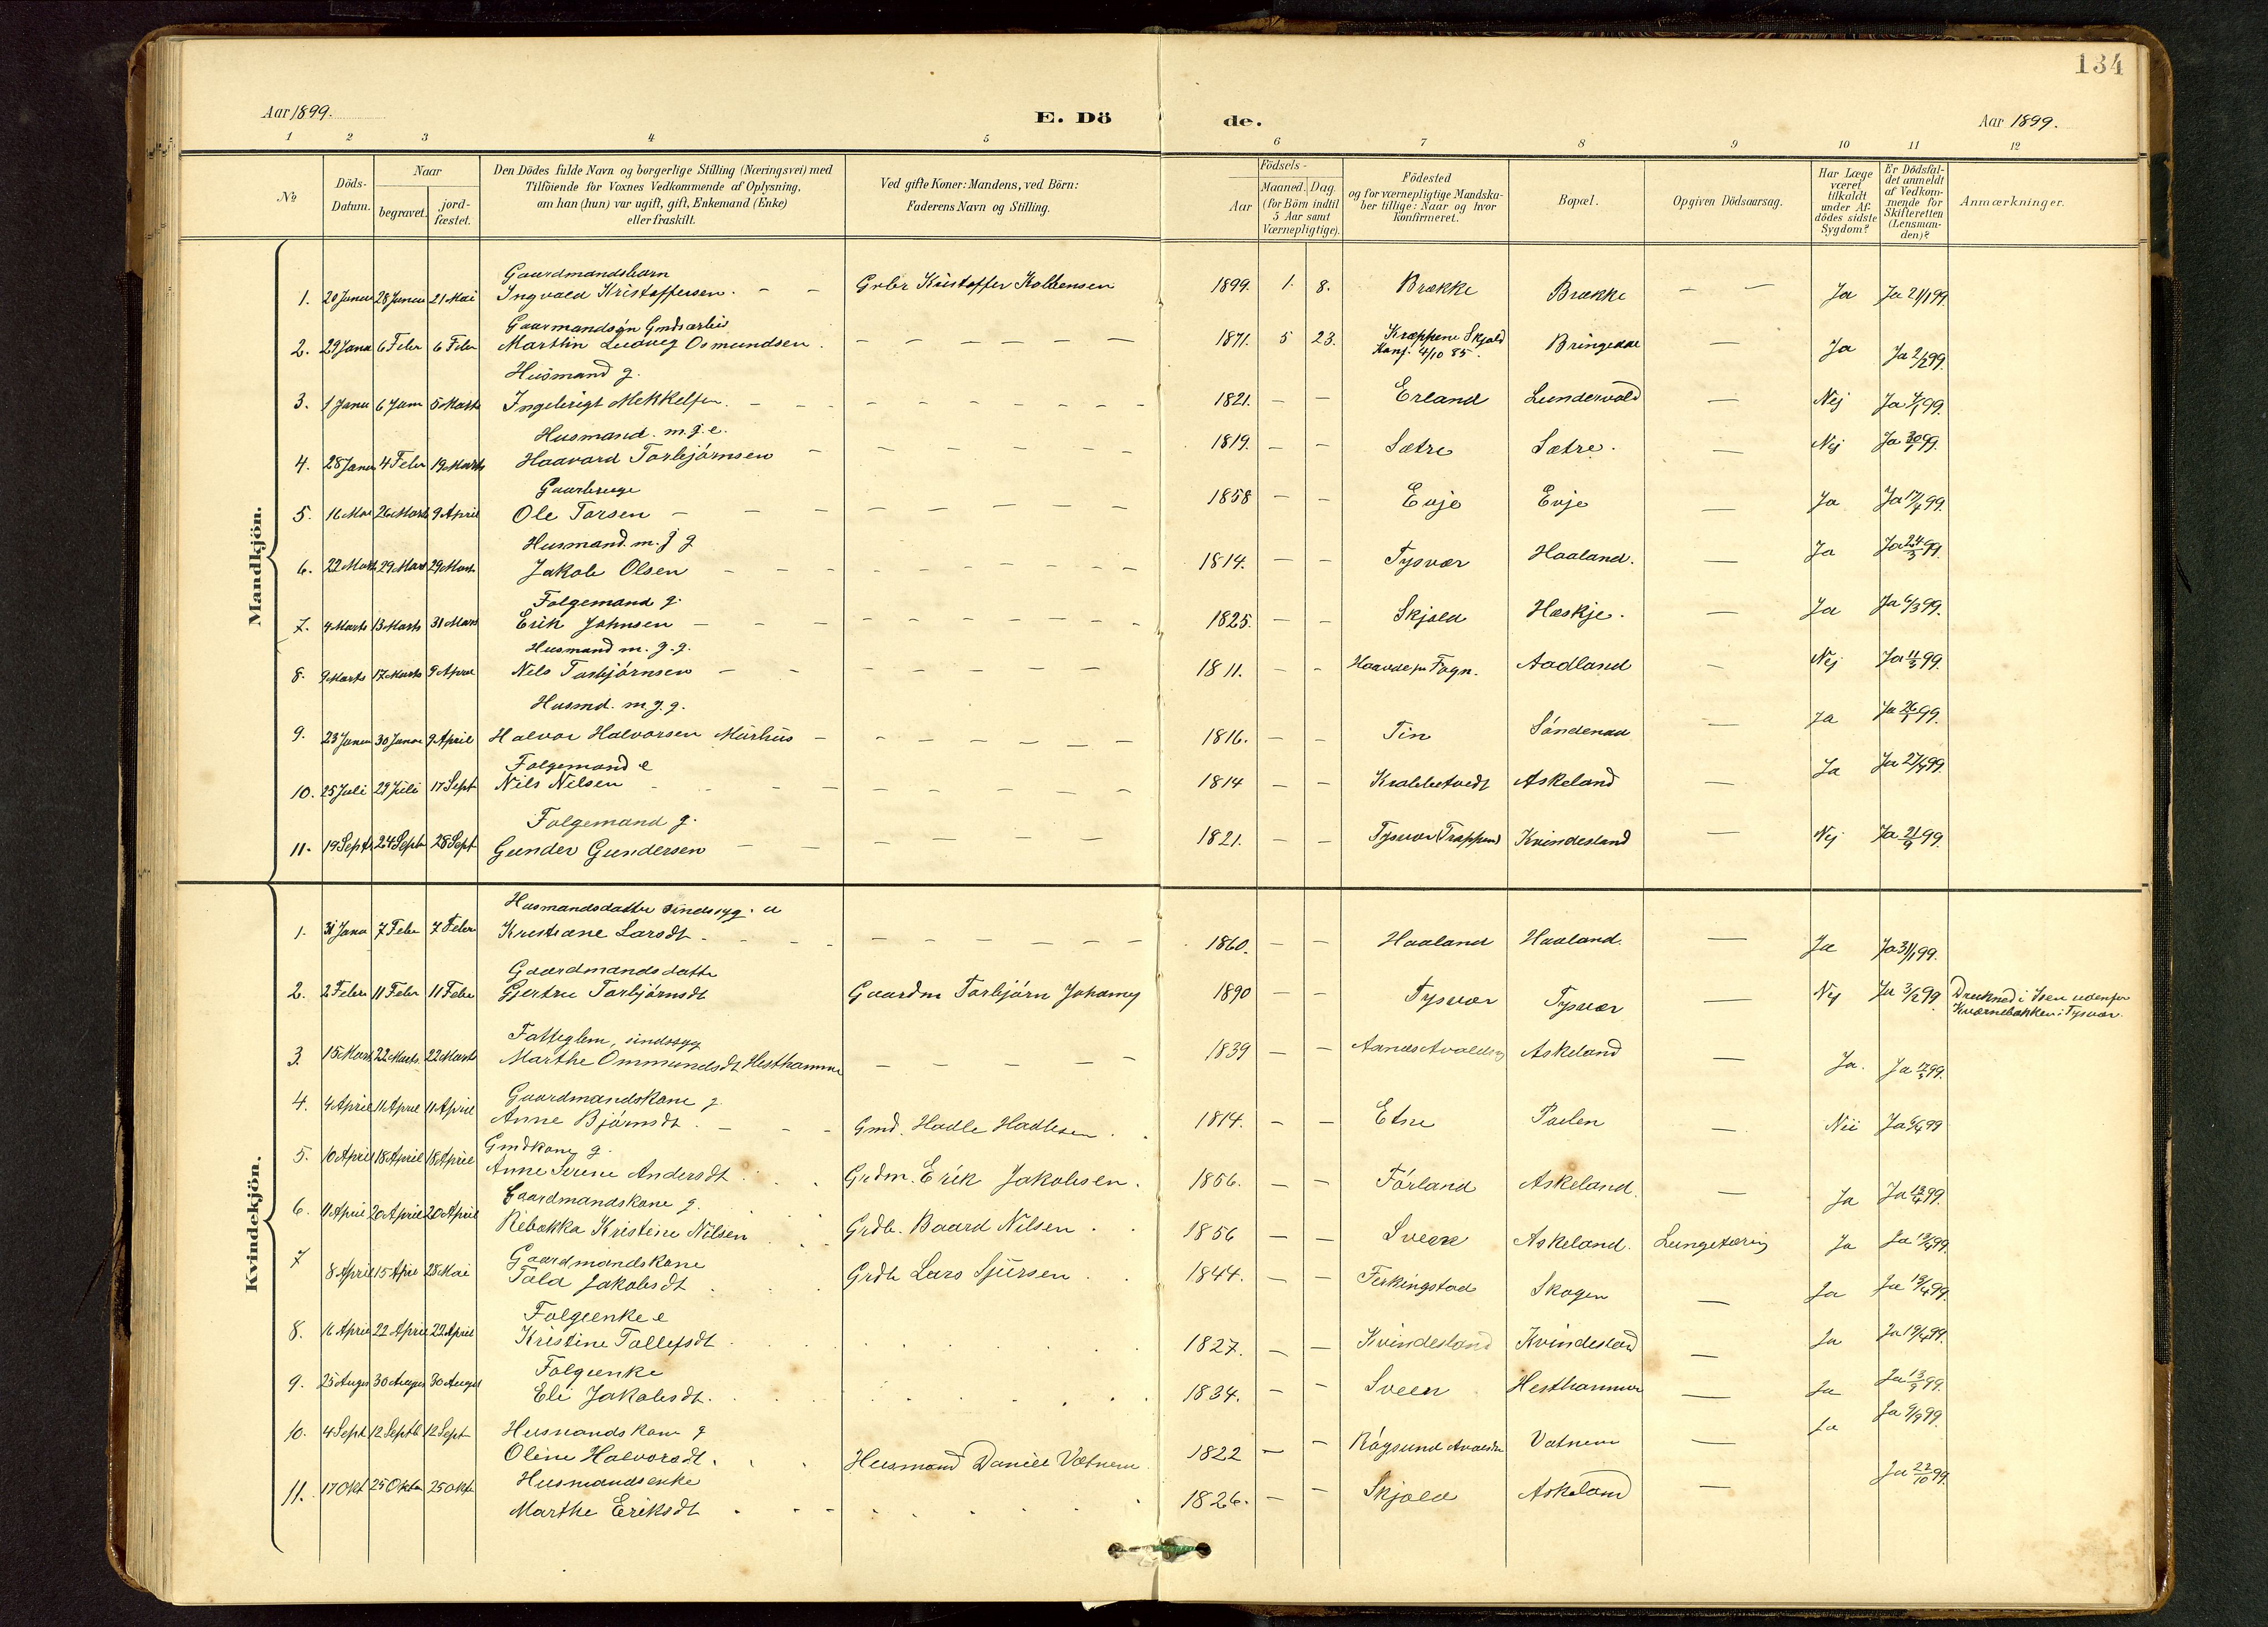 134
Aar 1899. E. Dö de. Aar 1899.
1 2 3 4 5 6 7 8 9 10 11 12
No
Döds-Datum.
Naar
begravet.
jordfæstet.
Den Dödes fulde Navn og borgerlige Stilling (Næringsvei) med
Tilföiende for Voxnes Vedkommende af Oplysning,
om han (hun) var ugift, gift, Enkemand (Enke)
eller fraskilt.
Ved gifte Koner: Mandens, ved Börn:
Faderens Navn og Stilling.
Födsels-
Aar
Maaned. Dag.
(for Börn indtil
5 Aar samt
Værnepligtige).
Födested
og for værnepligtige Mandska-
ber tillige: Naar og hvor
konfirmeret.
Bopæl.
Opgiven Dödsaarsag.
Har Læge
været
tilkaldt
under Af-
dödes sidste
Sygdom?
Er Dödsfal-
det anmeldt
af Vedkom-
mende for
Skifteretten
(Lensman-
den)?
Anmærkninger.
Mandkjön.
Gaardmandsbarn
1. 20 Januar 28 Januar 21 Mai Ingvald Kristoffersen. - - Grbr Kristoffer Kolbensen 1899. 1. 8. Brække Brække — — Ja Ja 21/1 99.
Gaarmandsön Gmdsarbei
2. 29 Janu 6 Febr 6 Febr Marthin Ludvig Osmundsen. 1871. 5 23. Kræppene Skjold Bringedal — Ja Ja 2/2 99.
Konf. 4/10 85.
Husmand g.
3. 1 Janu 6 Janu 5 Marts Ingebrigt Mekkelsen. 1821. — — Erland Lundervold — Nej Ja 99.
Husmand. m. j. e.
4. 28 Janu 4 Febr 19 Marts Haavard Torbjörnsen 1819. — — Sætre Sætre. — Nej Ja 30/1 99.
Gaarbruge
5. 16 Mar 26 Marts 9 April Ole Torsen 1858 — — Evje Evje — Ja Ja 17/4 99.
Husmand. m. j g
6. 22 Marts 29 Mars 29 Marts Jakob Olsen 1814. — — Tysvær Haaland. — Ja Ja 24/3 99.
Folgemand g.
7. 4 Marts 13 Marts 31 Mars Erik Johnsen 1825. — — Skjold Hæskje. — Ja Ja 6/3 99.
Husmand m. j. g.
8. 9 Marts 17 Marts 9 April Nils Torbjörnsen 1811. — — Fogn. Aadland — Nej Ja 11/3 99.
Husmd. m. j. g.
9. 23 Janu 30 Januar 9 April Halvor Halvorsen Mürhus 1816. — — Tin Söndenaa — Ja Ja 26/1 99.
Folgemand e
10. 25 Juli 29 Juli 17 Sept Nils Nilsen 1814 — — Krabbetvedt Askeland — Ja Ja 27/7 99.
Folgemand g.
11. 19 Sept 24 Sept 28 Sept Gunder Gundersen 1821. — — Tysvær Kvindesland — Nej Ja 21/9 99.
Kvindekjön.
Husmandsdatter sindssyg. u
1. 31 Janu 7 Febr 7 Febr Kristiane Larsdt. 1860. — — Haaland Haaland. — Ja Ja 31/1 99.
Gaardmandsdatter
2. 2 Febr 11 Febr 11 Febr Gjertru Torbjörnsdt Gaardm Torbjörn Johannes 1890 — — Tysvær Tysvær — Nej Ja 3/2 99. Drukned i Isen udenfor
Kværnebækken i Tysvær.
Fatteglem, sindssyg
3. 15 Marts 22 Marts 22 Marts Marthe Ommundsdt Hesthammer 1839 — — Askeland — Ja. Ja 17/3 99.
Gaardmandskone g
4. 4 April 11 April 11 April Anne Björnsdt. Gmd. Hadle Hadlesen. 1814. — — Etne — Nei Ja 6/4 99
Gmdkone g.
5. 10 April 18 April 18 April Anne Serine Andersdt. Grdm. Erik Jakobsen. 1856. — — Förland Askeland. — Ja Ja 13/4 99.
Gaardmandskone g.
6. 11 April 20 April 20 April Rebækka Kristine Nilsen Grdb. Baard Nilsen. 1856 — — Sveen Askeland. Lungetæring Ja Ja 99.
Gaardmandskone
7 8 April 15 Apri 28 Mai Tala Jakobsdt Grdb Lars Sjursen. 1844. — — Ferkingstad Skogen — Ja Ja 99.
Folgeenke e
8. 16 April 22 April 22 April Kristine Tollefsdt 1827. — — Kvindesland Kvindesland — Ja Ja 19/4 99.
Folgeenke
9. 25 August 30 August 30 August Eli Jakobsdt. 1834. — — Sveen Hesthammer — Ja Ja 13/9 99.
Husmandskone g
10. 4 Sept 12 Septb 12 Sept Oline Halvorsdt. Husmand Daniel Vatnem 1822 — — Rögsund Avaldsn Vatnem — Ja Ja 9/9 99.
Husmandsenke
11. 17 Okt 25 Oktb 25 Okt Marthe Eriksdt 1826. — — Skjold Askeland — Ja 22/10 99.